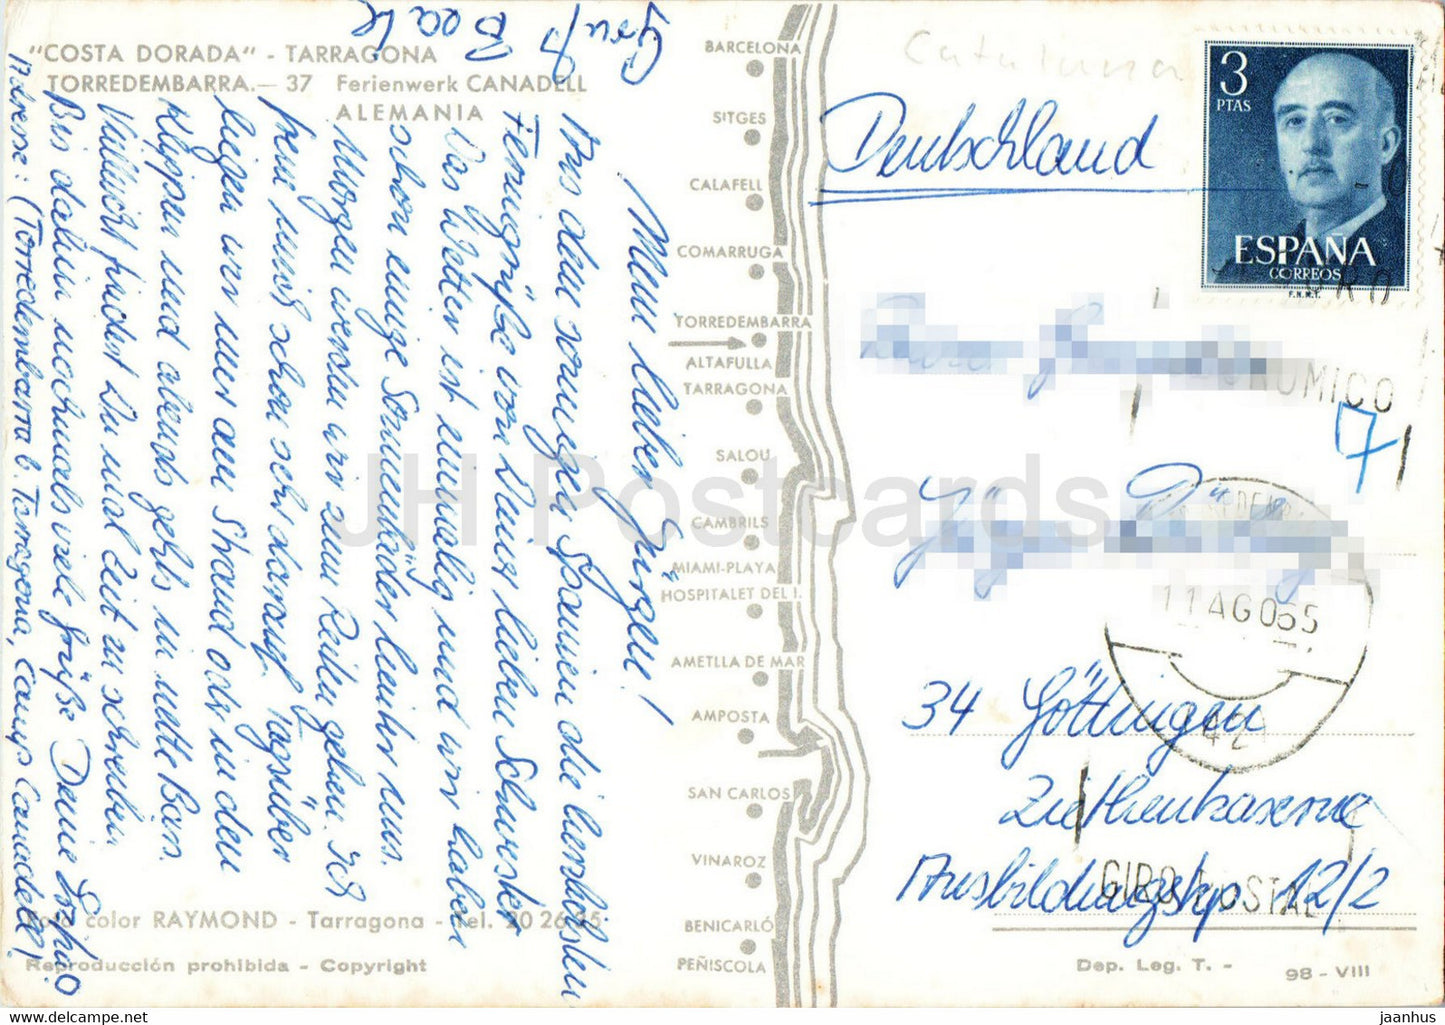 "COSTA DORADA" - TARRAGONA
TORREDEMBARRA.— 37 Ferienwerk CANADELL
ALEMANIA
Mein lieber Jürgen!
Aus dem sonnigen Spanien die herzlichsten
Feriengrüße von Deiner lieben Schwester
Das Wetter ist einmalig und wir haben
schon einige Sonnenbäder hinter uns.
Morgen werden wir zum Reiten gehen. Ich
freue mich schon sehr darauf. Tagsüber
liegen wir hier am Strand oder in den
Klippen und abends gehts in nette Bars.
Vielleicht findest Du mal Zeit zu schreiben
Bis dahin nochmals viele Grüße Deine
Adresse: (Torredembarra b. Tarragona, Camp Canadell)
Gruß
Beate
Foto color RAYMOND - Tarragona - Tel. 20 26 95
Reproducción prohibida - Copyright
BARCELONA
SITGES
CALAFELL
COMARRUGA
TORREDEMBARRA
ALTAFULLA
TARRAGONA
SALOU
CAMBRILS
MIAMI-PLAYA
HOSPITALET DEL I.
AMETLLA DE MAR
AMPOSTA
SAN CARLOS
VINAROZ
BENICARLÓ
PEÑISCOLA
Cataluna
Deutschland
3
PTAS
ESPAÑA
CORREOS
F.N.M.T.
7
11 AGO 65
34 Göttingen
Ziethenkaserne
Ausbildungskp 12/2
GIRO POSTAL
Dep. Leg. T. -
98 - VIII
JH Postcards
jaanhus - www.delcampe.net